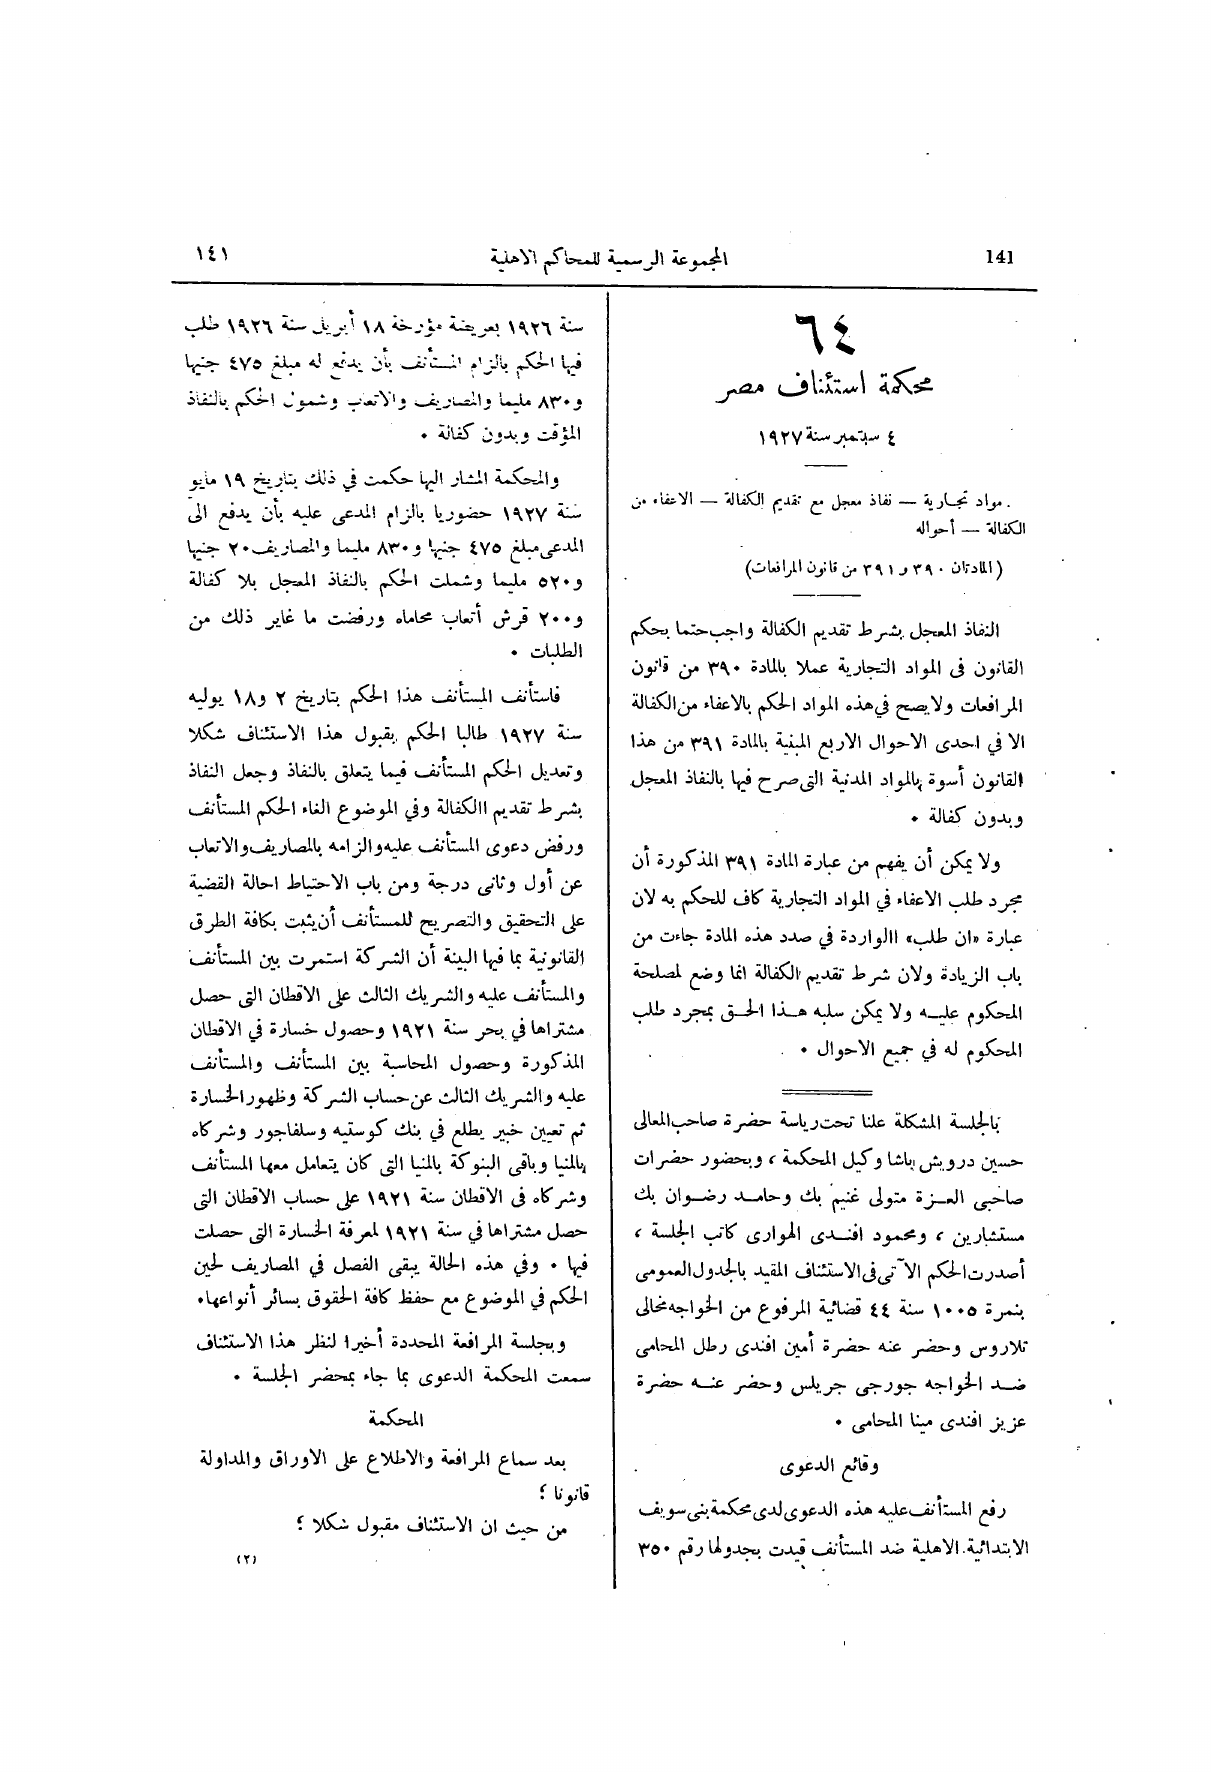 141
المجموعة الرسمية للمحاكم الاهلية
١٤١
٦٤
محكمة استئناف مصر
٤ سبتمبر سنة ١٩٢٧
مواد تجارية — نفاذ معجل مع تقديم الكفالة — الاعفاء من
الكفالة — أحواله
( المادتان ٣٩٠ و ٣٩١ من قانون المرافعات)
النفاذ المعجل بشرط تقديم الكفالة واجب حتما بحكم
القانون فى المواد التجارية عملا بالمادة ٣٩٠ من قانون
المرافعات ولا يصح في هذه المواد الحكم بالاعفاء من الكفالة
الا في احدى الاحوال الاربع المبنية بالمادة ٣٩١ من هذا
القانون أسوة بالمواد المدنية التى صرح فيها بالنفاذ المعجل
وبدون كفالة ٠
ولا يمكن أن يفهم من عبارة المادة ٣٩١ المذكورة أن
مجرد طلب الاعفاء في المواد التجارية كاف للحكم به لان
عبارة «ان طلب» االواردة في صدد هذه المادة جاءت من
باب الزيادة ولان شرط تقديم الكفالة انما وضع لمصلحة
المحكوم عليه ولا يمكن سلبه هذا الحق بمجرد طلب
المحكوم له في جميع الاحوال ٠
بالجلسة المشكلة علنا تحت رياسة حضرة صاحب المعالى
حسين درويش باشا وكيل المحكمة ، وبحضور حضرات
صاحبى العزة متولى غنيم بك وحامد رضوان بك
مستشارين ، ومحمود افندى الهوارى كاتب الجلسة ،
أصدرت الحكم الآتى فى الاستئناف المقيد بالجدول العمومى
بنمرة ١٠٠٥ سنة ٤٤ قضائية المرفوع من الخواجه مخالى
تلاروس وحضر عنه حضرة أمين افندى رطل المحامى
ضد الخواجه جورجى جريلس وحضر عنه حضرة
عزيز افندى مينا المحامى ٠
وقائع الدعوى
رفع المستأنف عليه هذه الدعوى لدى محكمة بنى سويف
الابتدائية الاهلية ضد المستأنف قيدت بجدولها رقم ٣٥٠
سنة ١٩٢٦ بعريضة مؤرخة ١٨ أبريل سنة ١٩٢٦ طلب
فيها الحكم بالزام المستأنف بأن يدفع له مبلغ ٤٧٥ جنيها
و٨٣٠ مليما والمصاريف والاتعاب وشمول الحكم بالنفاذ
المؤقت وبدون كفالة ٠
والمحكمة المشار اليها حكمت في ذلك بتاريخ ١٩ مايو
سنة ١٩٢٧ حضوريا بالزام المدعى عليه بأن يدفع الى
المدعى مبلغ ٤٧٥ جنيها و٨٣٠ مليما والمصاريف ٢٠ جنيها
و٥٢٠ مليما وشملت الحكم بالنفاذ المعجل بلا كفالة
و٢٠٠ قرش أتعاب محاماه ورفضت ما غاير ذلك من
الطلبات ٠
فاستأنف المستأنف هذا الحكم بتاريخ ٢ و١٨ يوليه
سنة ١٩٢٧ طالبا الحكم بقبول هذا الاستئناف شكلا
وتعديل الحكم المستأنف فيما يتعلق بالنفاذ وجعل النفاذ
بشرط تقديم االكفالة وفي الموضوع الغاء الحكم المستأنف
ورفض دعوى المستأنف عليه والزامه بالمصاريف والاتعاب
عن أول وثانى درجة ومن باب الاحتياط احالة القضية
على التحقيق والتصريح للمستأنف أن يثبت بكافة الطرق
القانونية بما فيها البينة أن الشركة استمرت بين المستأنف
والمستأنف عليه والشريك الثالث على الاقطان التى حصل
مشتراها في بحر سنة ١٩٢١ وحصول خسارة في الاقطان
المذكورة وحصول المحاسبة بين المستأنف والمستأنف
عليه والشريك الثالث عن حساب الشركة وظهور الخسارة
ثم تعيين خبير يطلع في بنك كوستيه وسلفاجور وشركاه
بالمنيا وباقى البنوكة بالمنيا التى كان يتعامل معها المستأنف
وشركاه فى الاقطان سنة ١٩٢١ على حساب الاقطان التى
حصل مشتراها في سنة ١٩٢١ لمعرفة الخسارة التى حصلت
فيها ٠ وفي هذه الحالة يبقى الفصل في المصاريف لحين
الحكم في الموضوع مع حفظ كافة الحقوق بسائر أنواعها٠
وبجلسة المرافعة المحددة أخيرا لنظر هذا الاستئناف
سمعت المحكمة الدعوى بما جاء بمحضر الجلسة ٠
المحكمة
بعد سماع المرافعة والاطلاع على الاوراق والمداولة
قانونا ؟
من حيث ان الاستئناف مقبول شكلا ؟
(٢)